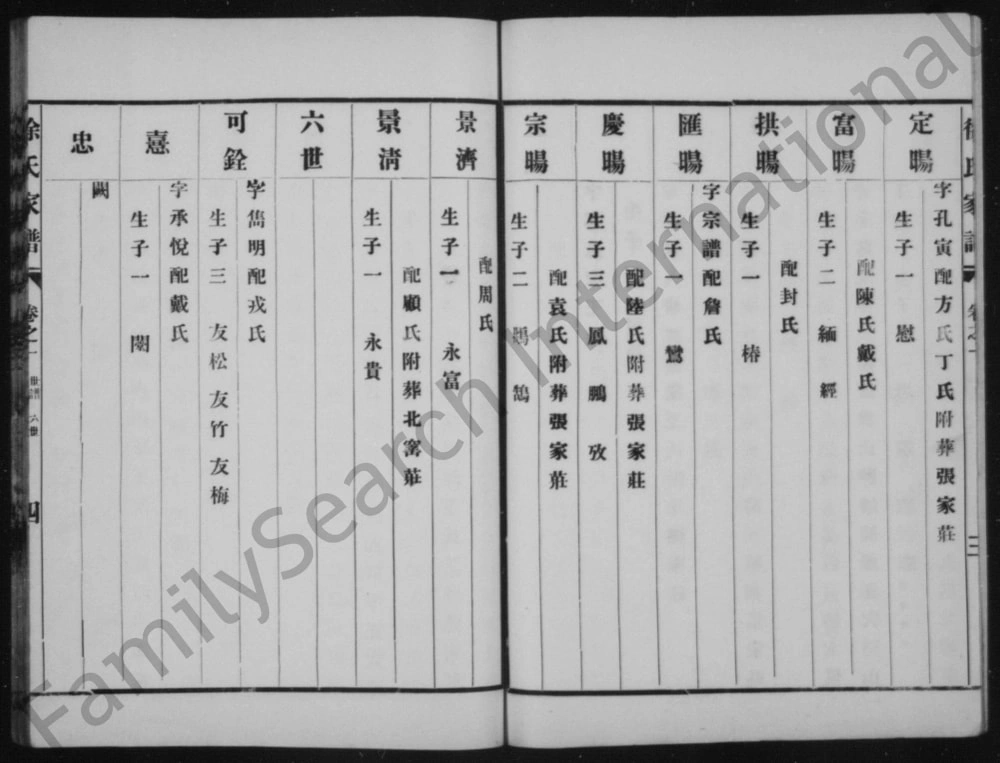 徐氏家譜 卷之一
三
定暘
字孔寅配方氏丁氏附葬張家莊
生子一 慰
富暘
配陳氏戴氏
生子二 緬 經
拱暘
配封氏
生子一 椿
匯暘
字宗譜配詹氏
生子一 鸞
慶暘
配陸氏附葬張家莊
生子三 鳳 鵬 攷
宗暘
配袁氏附葬張家莊
生子二 鵠
景濟
配周氏
生子一 永富
景清
配顧氏附葬北窰莊
生子一 永貴
六世
可銓
字雋明配戎氏
生子三 友松 友竹 友梅
憙
字承悅配戴氏
生子一
忠
闕
徐氏家譜 卷之一 世譜 六世 四
FamilySearch International